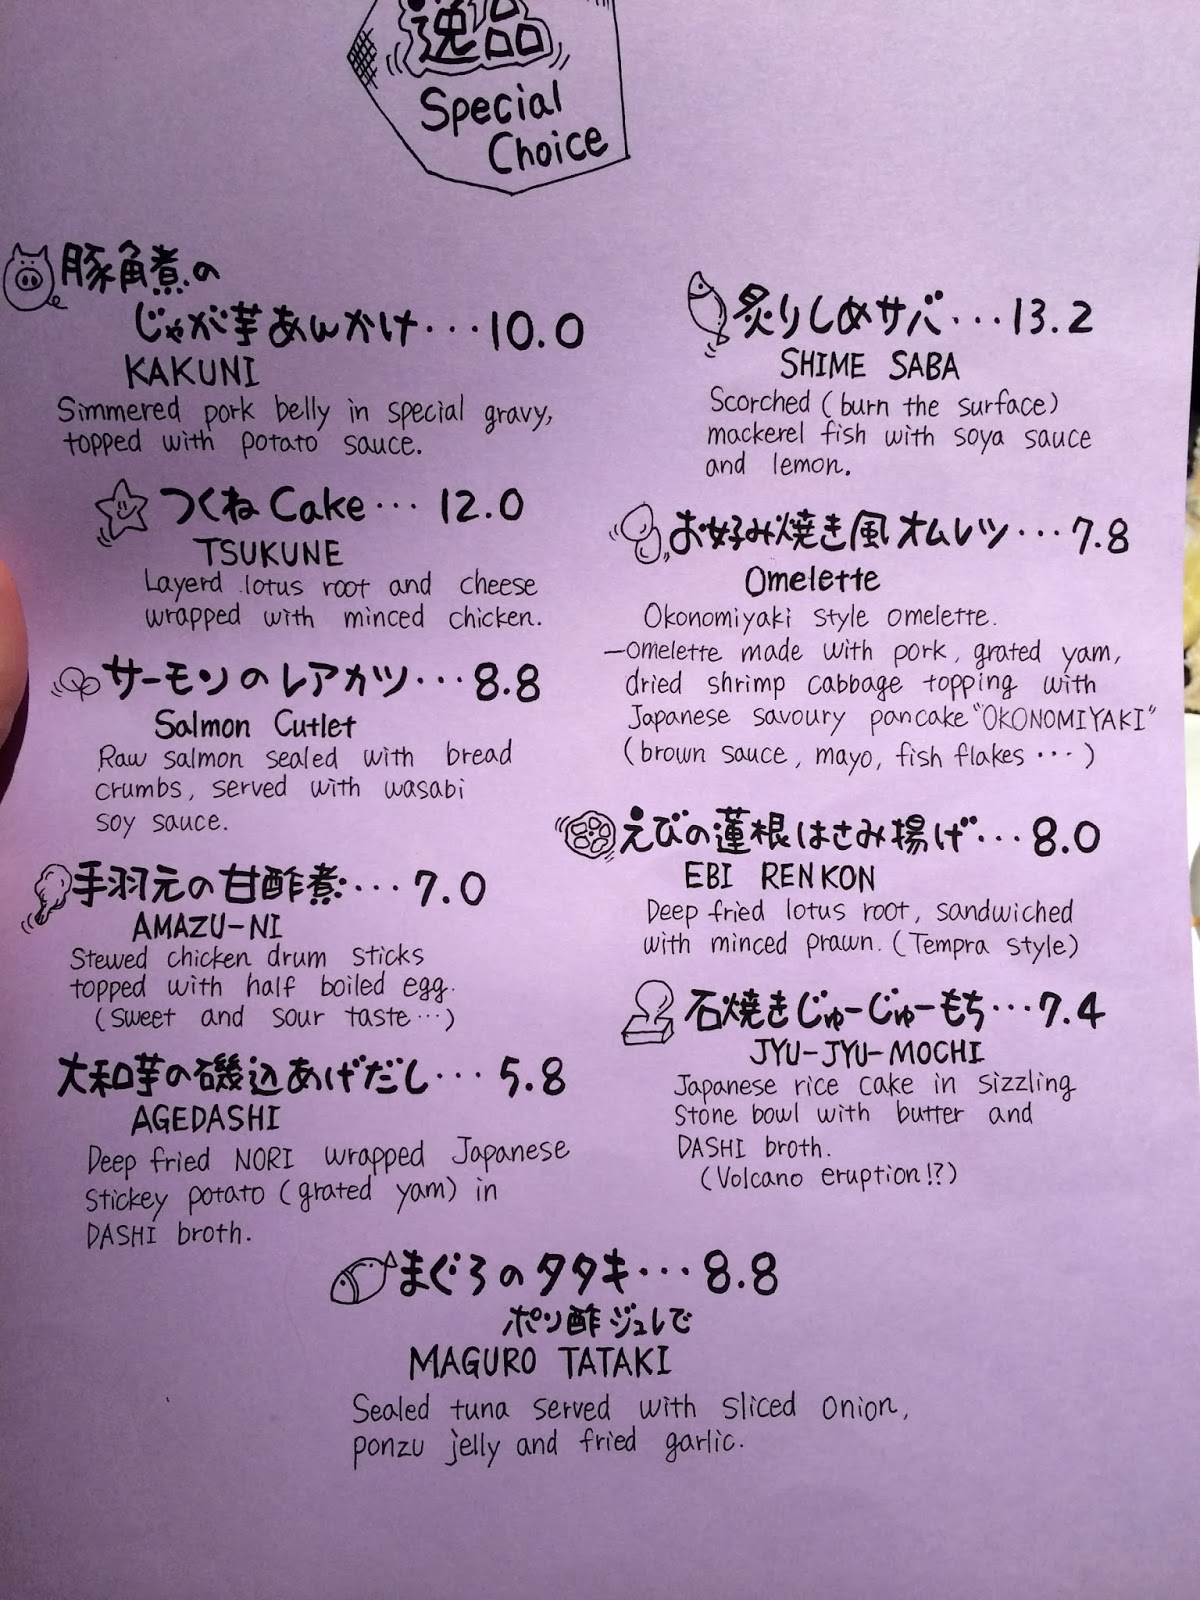 逸品
Special
Choice
豚角煮の
じゃが芋あんかけ···10.0
KAKUNI
Simmered pork belly in special gravy,
topped with potato sauce.
つくねCake··· 12.0
TSUKUNE
Layerd lotus root and cheese
wrapped with minced chicken.
サーモンのレアカツ···8.8
Salmon Cutlet
Raw salmon sealed with bread
crumbs, served with wasabi
soy sauce.
手羽元の甘酢煮···7.0
AMAZU-NI
Stewed chicken drum sticks
topped with half boiled egg.
(sweet and sour taste···)
大和芋の磯辺あげだし··· 5.8
AGEDASHI
Deep fried NORI wrapped Japanese
Stickey potato (grated yam) in
DASHI broth.
炙りしめサバ···13.2
SHIME SABA
Scorched (burn the surface)
mackerel fish with soya sauce
and lemon.
お好み焼き風オムレツ···7.8
Omelette
Okonomiyaki style omelette.
—omelette made with pork, grated yam,
dried shrimp cabbage topping with
Japanese savoury pancake "OKONOMIYAKI"
(brown sauce, mayo, fish flakes ···)
えびの蓮根はさみ揚げ···8.0
EBI RENKON
Deep fried lotus root, sandwiched
with minced prawn. (Tempra style)
石焼きじゅーじゅーもち···7.4
JYU-JYU-MOCHI
Japanese rice cake in sizzling
Stone bowl with butter and
DASHI broth.
(Volcano eruption!?)
まぐろのタタキ···8.8
ポン酢ジュレで
MAGURO TATAKI
Sealed tuna served with sliced onion,
ponzu jelly and fried garlic.